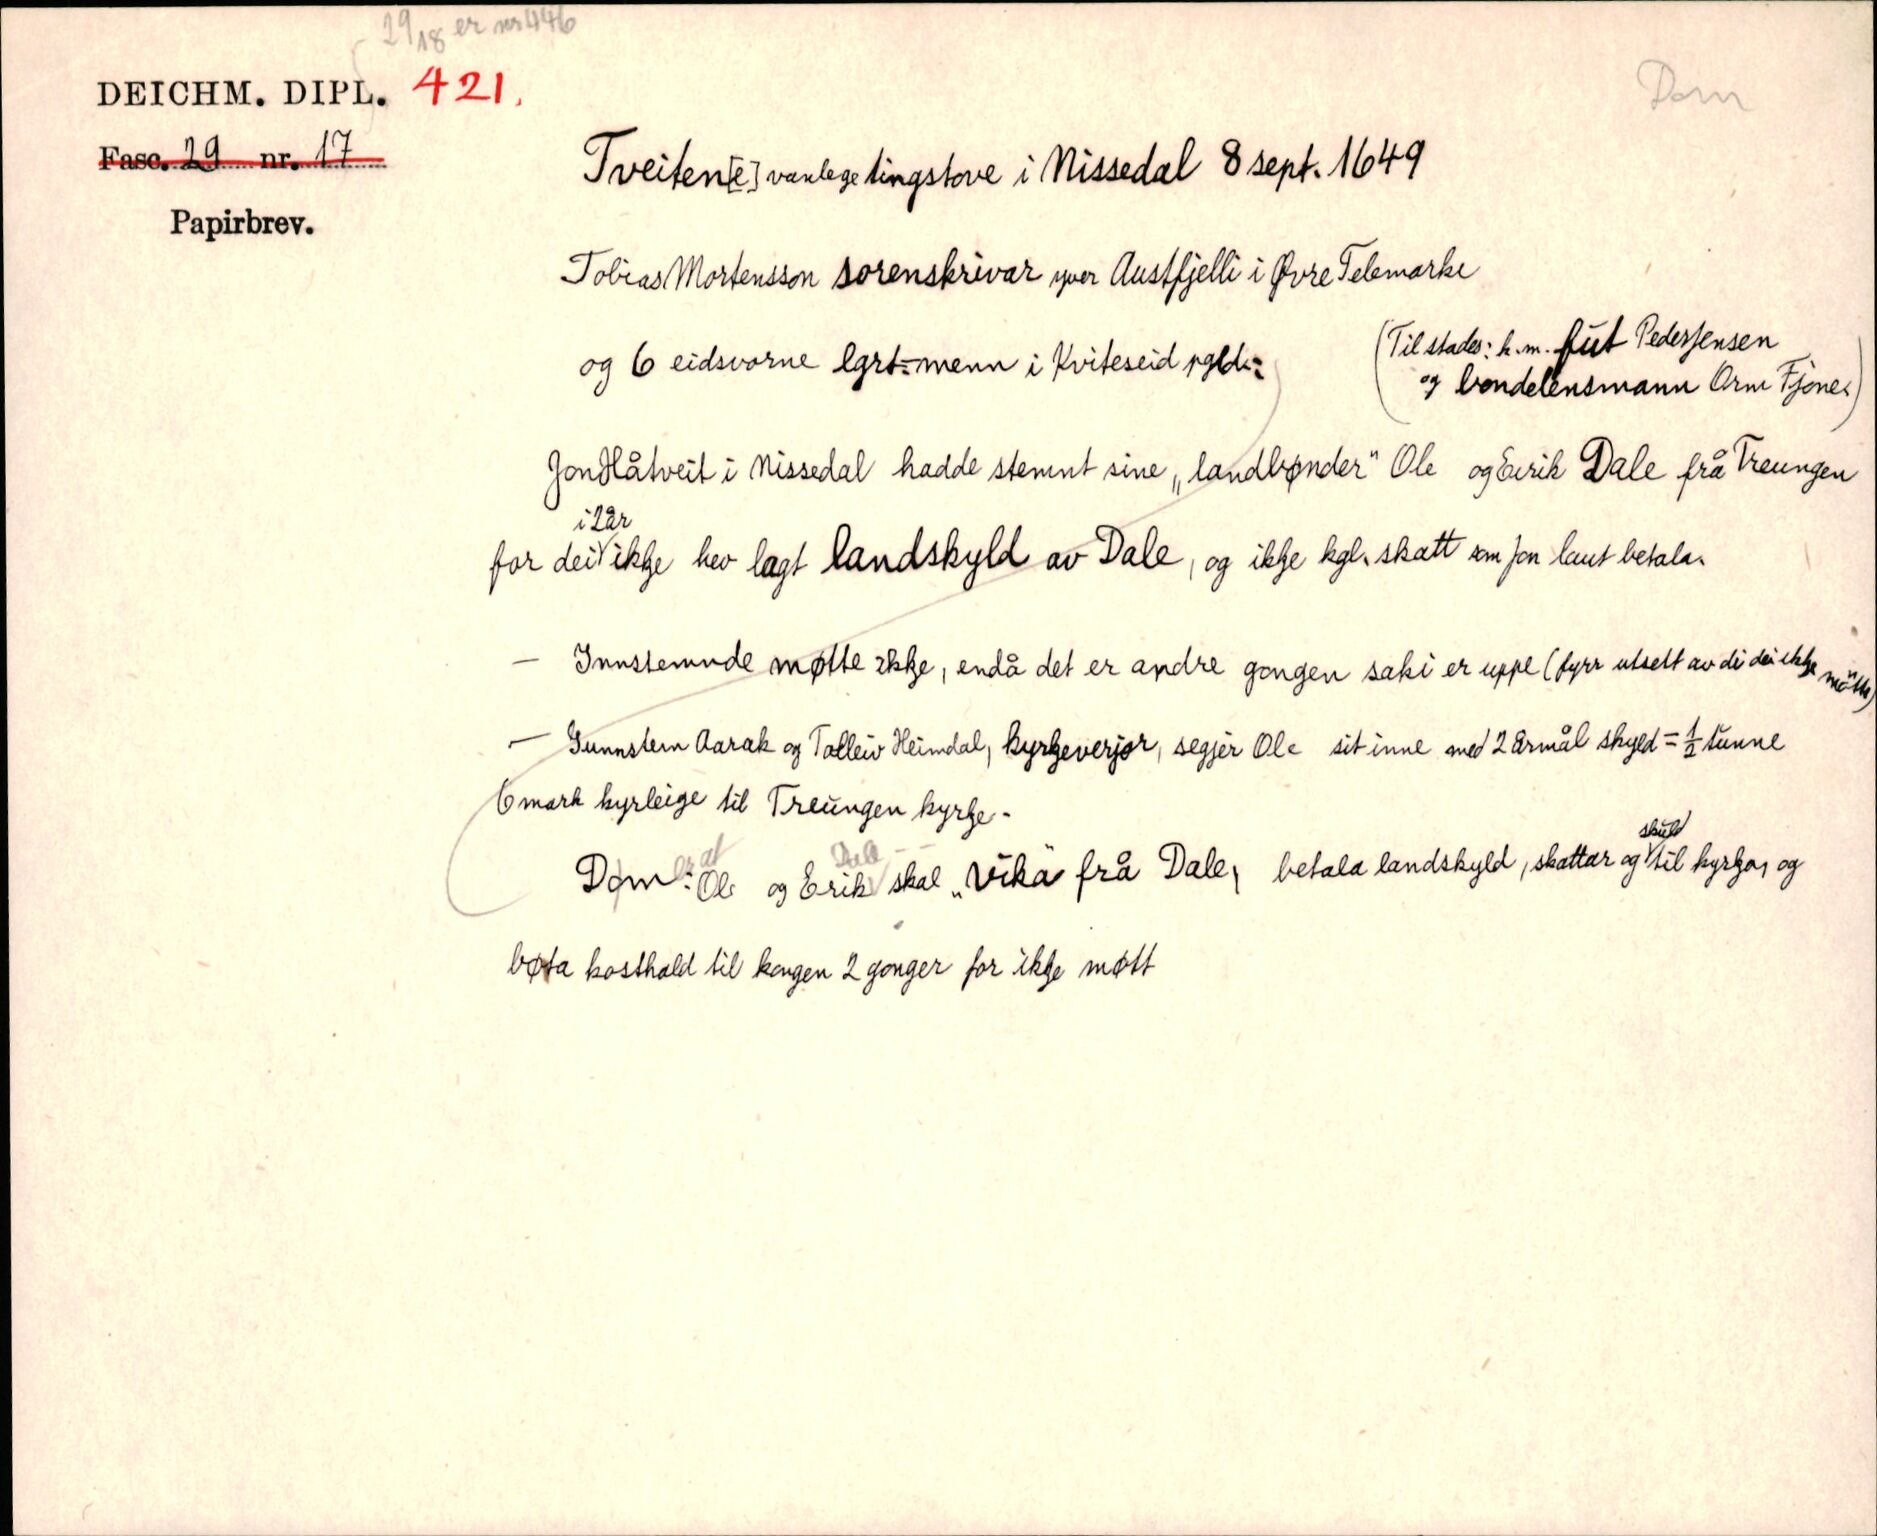 29 18 er nr 446
DEICHM. DIPL. 421.
Dom
Fasc. 29 nr. 17
Papirbrev.
Tveiten[e] vanlege tingstove i Nissedal 8 sept. 1649
Tobias Mortensson sorenskrivar yver Austfjelli i Øvre Telemarke
og 6 eidsvorne lgrt=menn i Kviteseid pgld.:
(Til stades: k.m. fut Peder Jensen
og bondelensmann Orm Fjone.)
Jon Håtveit i Nissedal hadde stemnt sine „landbønder" Ole og Eirik Dale frå Treungen
i 2 år
for dei ikkje hev lagt landskyld av Dale, og ikkje kgl. skatt som Jon laut betala.
— Innstemnde møtte ikkje, endå det er andre gongen saki er uppe (fyrr utsett av di dei ikkje møtte)
— Gunnstein Aarak og Tolleiv Heimdal, kyrkjeverjor, segjer Ole sit inne med 2 årmål skyld = 1/2 tunne
6 mark kyrleige til Treungen kyrkje.
er at Dale
Dom: Ole og Erik skal „vika" frå Dale, betala landskyld, skattar og skuld til kyrkja, og
bøta kosthald til kongen 2 gonger for ikkje møtt